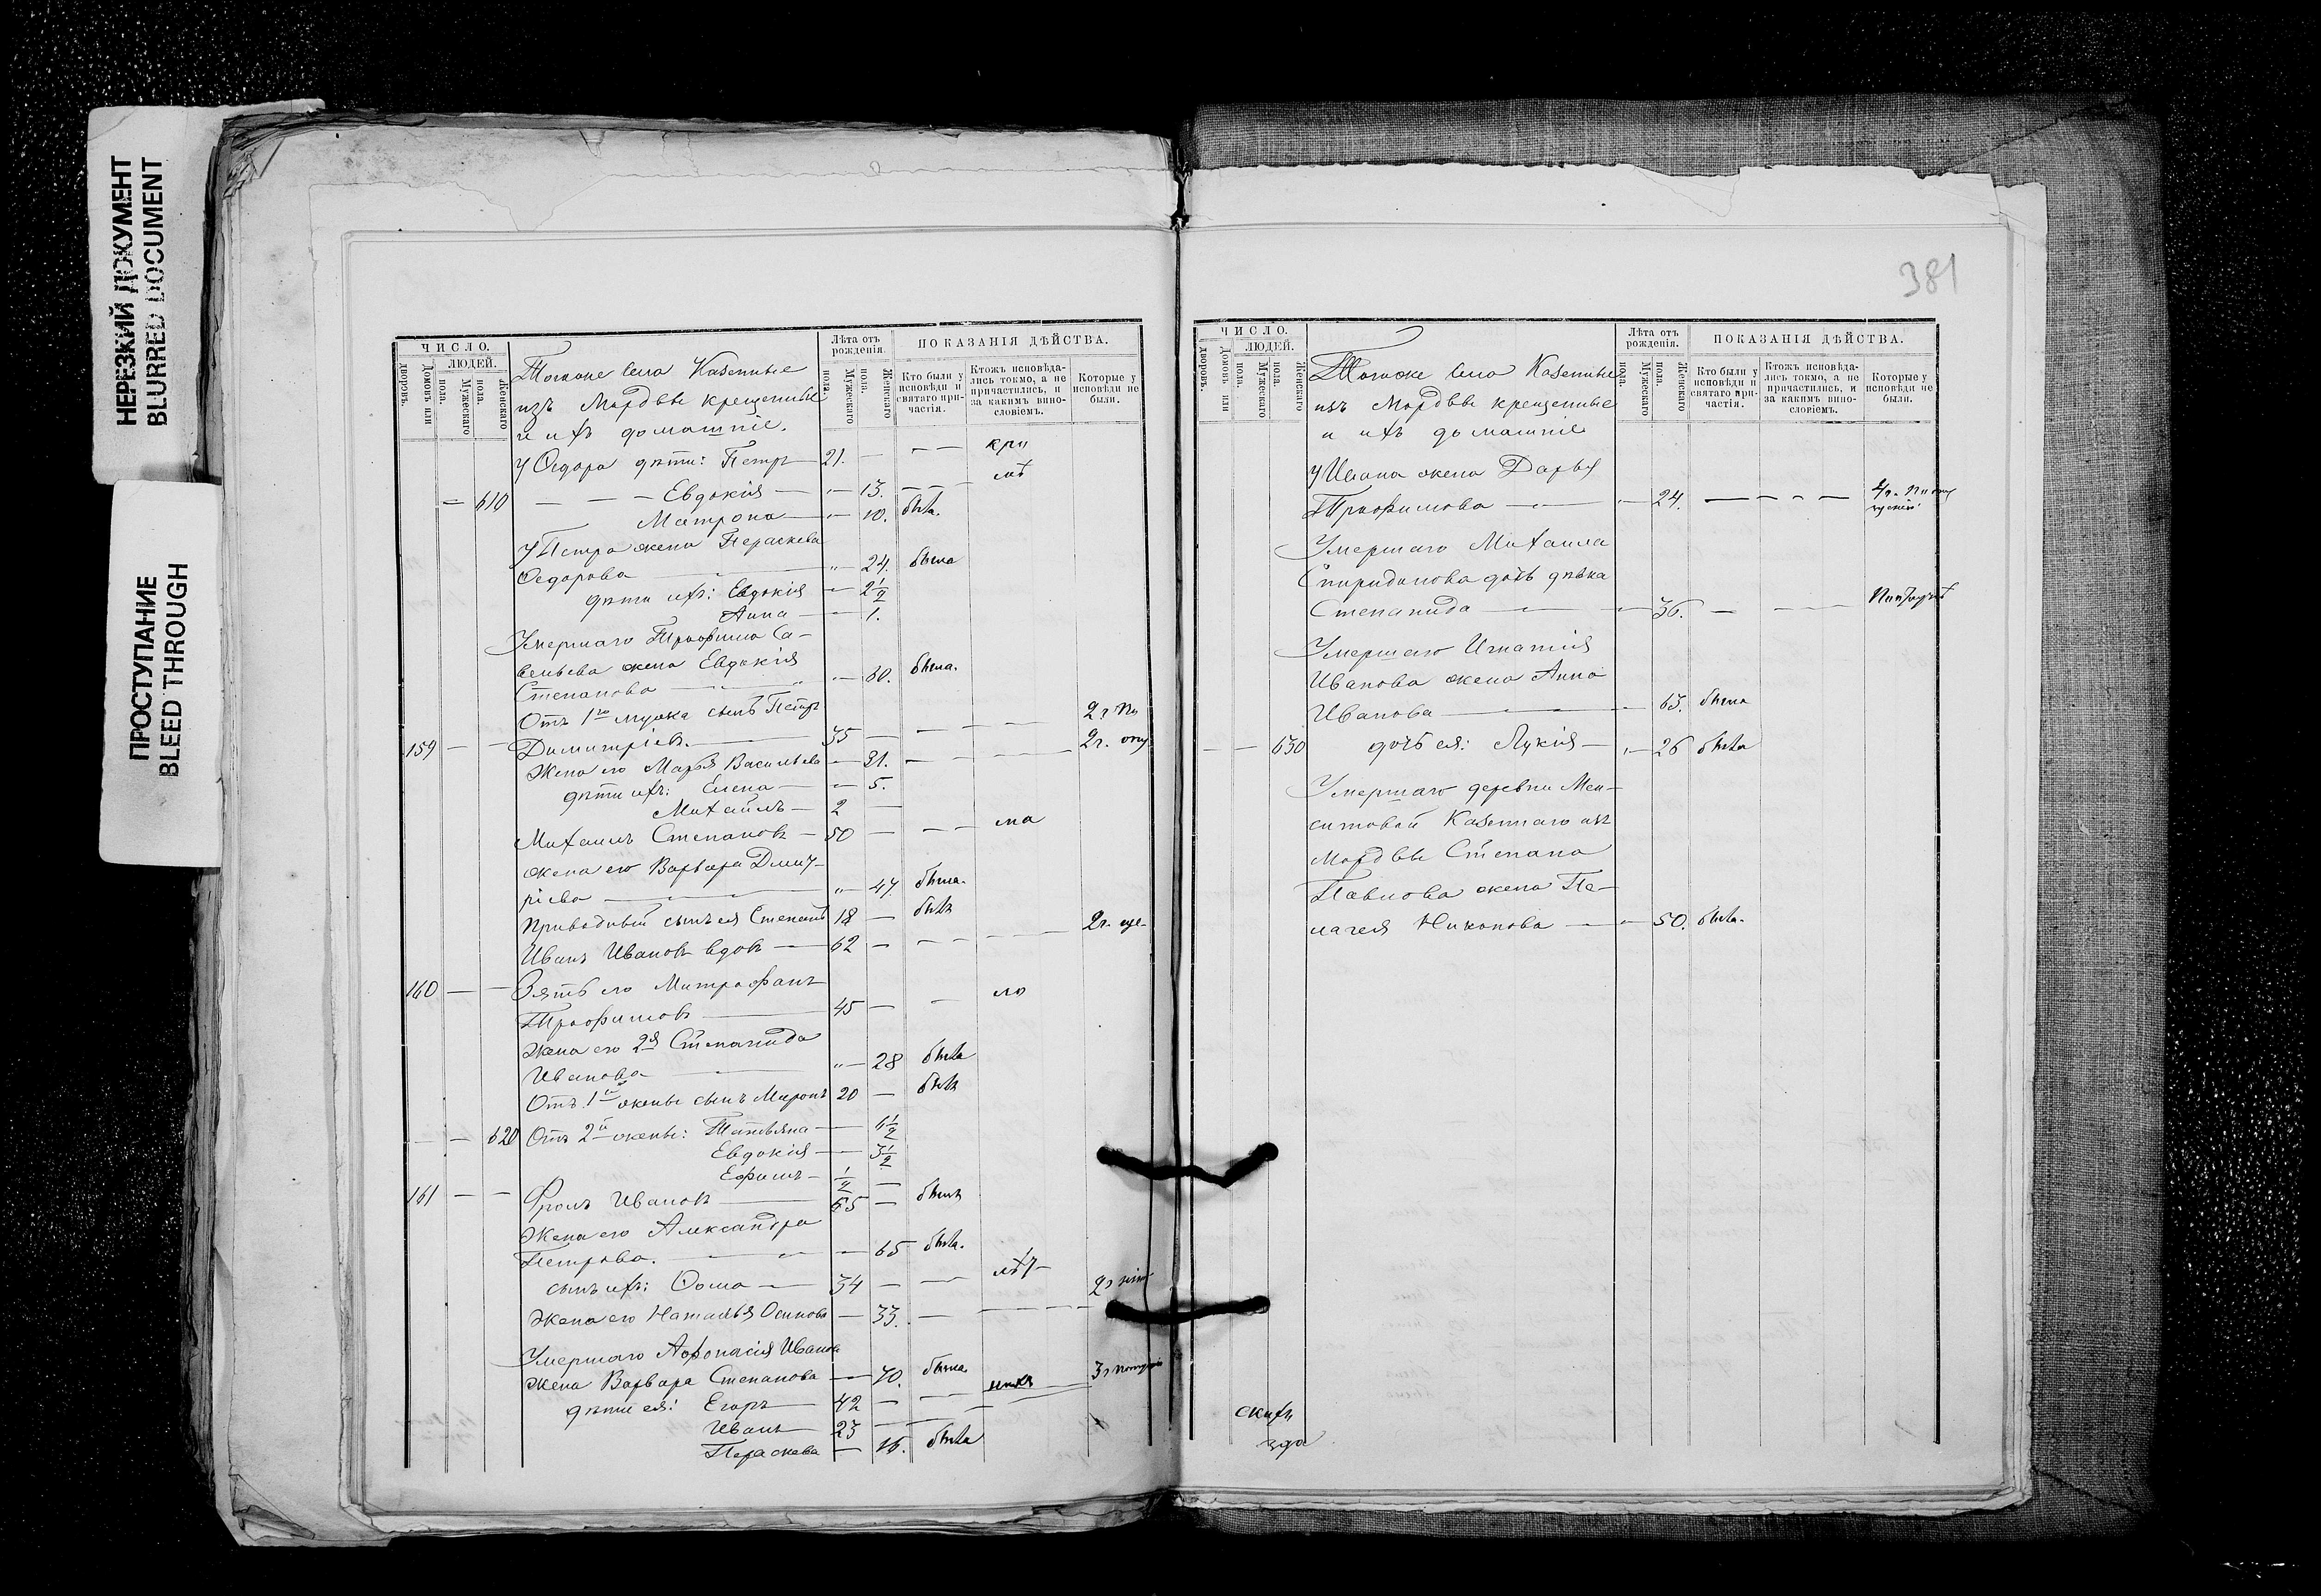 НЕРЕЗКИЙ ДОКУМЕНТ
BLURRED DOCUMENT
ПРОСТУПАНИЕ
BLEED THROUGH
ЧИСЛО.
ЛЮДЕЙ.
Домовъ или дворовъ.
Мужескаго пола.
Женскаго пола.
Лѣта отъ рожденія.
Мужескаго пола.
Женскаго
ПОКАЗАНІЯ ДѢЙСТВА.
Кто были у исповѣди и святаго причастія.
Ктожъ исповѣдались токмо, а не причастились, и за какимъ винословіемъ.
Которые у исповѣди не были.
Тогоже села Казенные
изъ Мордвы крещенные
и ихъ домашніе.
У Ѳедора дѣти: Петръ 21.
610 Евдокія 13.
Матрона 10. была.
У Петра жена Параскева
Ѳедорова 24. была
дѣти ихъ: Евдокія 2½
Анна 1.
Умершаго Трофима Са-
вельева жена Евдокія
Степанова 60. была.
Отъ 1го мужа сынъ Петръ
159 Димитріевъ. 35
Жена его Марья Васильева 31.
дѣти ихъ: Елена 5.
Михаилъ 2
Михаилъ Степановъ 50
жена его Варвара Дмит-
ріева 47. была.
Приводный сынъ ея Степанъ 18 былъ
Иванъ Ивановъ вдовъ 62
160 Зять его Митрофанъ
Трофимовъ 45
Жена его 2я Степанида
Иванова 28 была
Отъ 1й жены сынъ Миронъ 20 былъ
620 Отъ 2й жены: Татьяна 6½
Евдокія 3½
Ефимъ ½
161 Фролъ Ивановъ 65 былъ
Жена его Александра
Петрова. 65 была.
сынъ ихъ: Ѳома 34
Жена его Наталья Осипова 33.
Умершаго Аѳонасія Иванова
жена Варвара Степанова 70. была
дѣти ея: Егоръ 42
Иванъ 23
Параскева 16. была
381
ЧИСЛО.
ЛЮДЕЙ.
Домовъ или дворовъ.
Мужескаго пола.
Женскаго пола.
Лѣта отъ рожденія.
Мужескаго пола.
Женскаго пола.
ПОКАЗАНІЯ ДѢЙСТВА.
Кто были у исповѣди и святаго причастія.
Ктожъ исповѣдались токмо, а не причастились, и за какимъ винословіемъ.
Которые у исповѣди не были.
Тогоже села Казенные
изъ Мордвы крещенные
и ихъ домашніе
У Ивана жена Дарья
Трофимова 24.
Умершаго Михаила
Спиридонова дочь дѣвка
Степанида 36.
Умершаго Игнатія
Иванова жена Анна
Иванова 63. была
630 дочь ея: Лукія 26 была
Умершаго деревни Мен-
ситовой Казеннаго изъ
Мордвы Степана
Павлова жена Пе-
лагея Никонова 50. была.